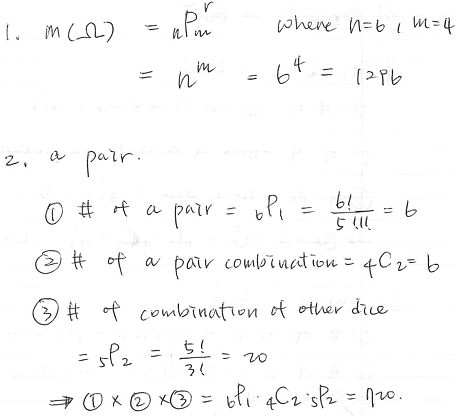 1. m(Ω) = nPmʳ where n=6, m=4
= nᵐ = 6⁴ = 1296
2. a pair.
① # of a pair = ₆P₁ = 6!/5!1! = 6
② # of a pair combination = ₄C₂ = 6
③ # of combination of other dice
= ₅P₂ = 5!/3! = 20
⇒ ① × ② × ③ = ₆P₁ · ₄C₂ · ₅P₂ = 720.